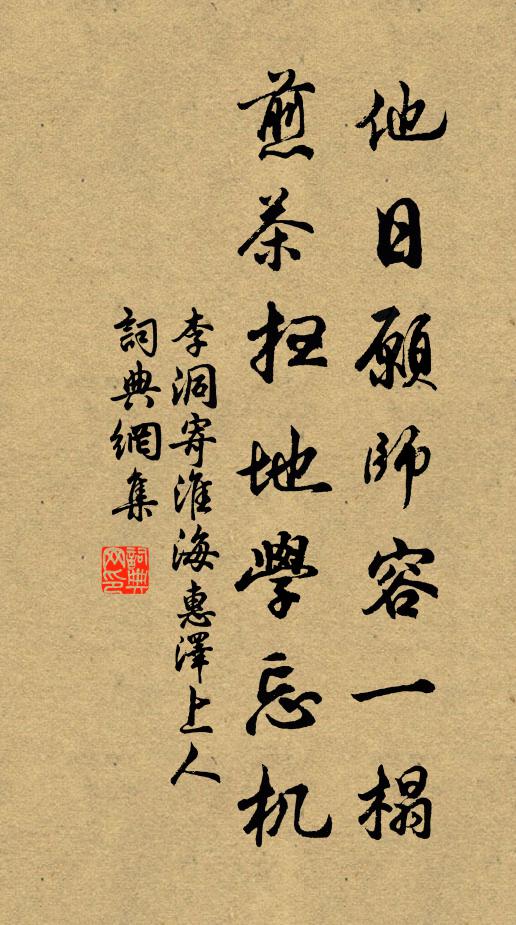 他日願師容一榻
煎茶扫地學忘机
李洞寄淮海惠澤上人
詞典網集
詞典网印